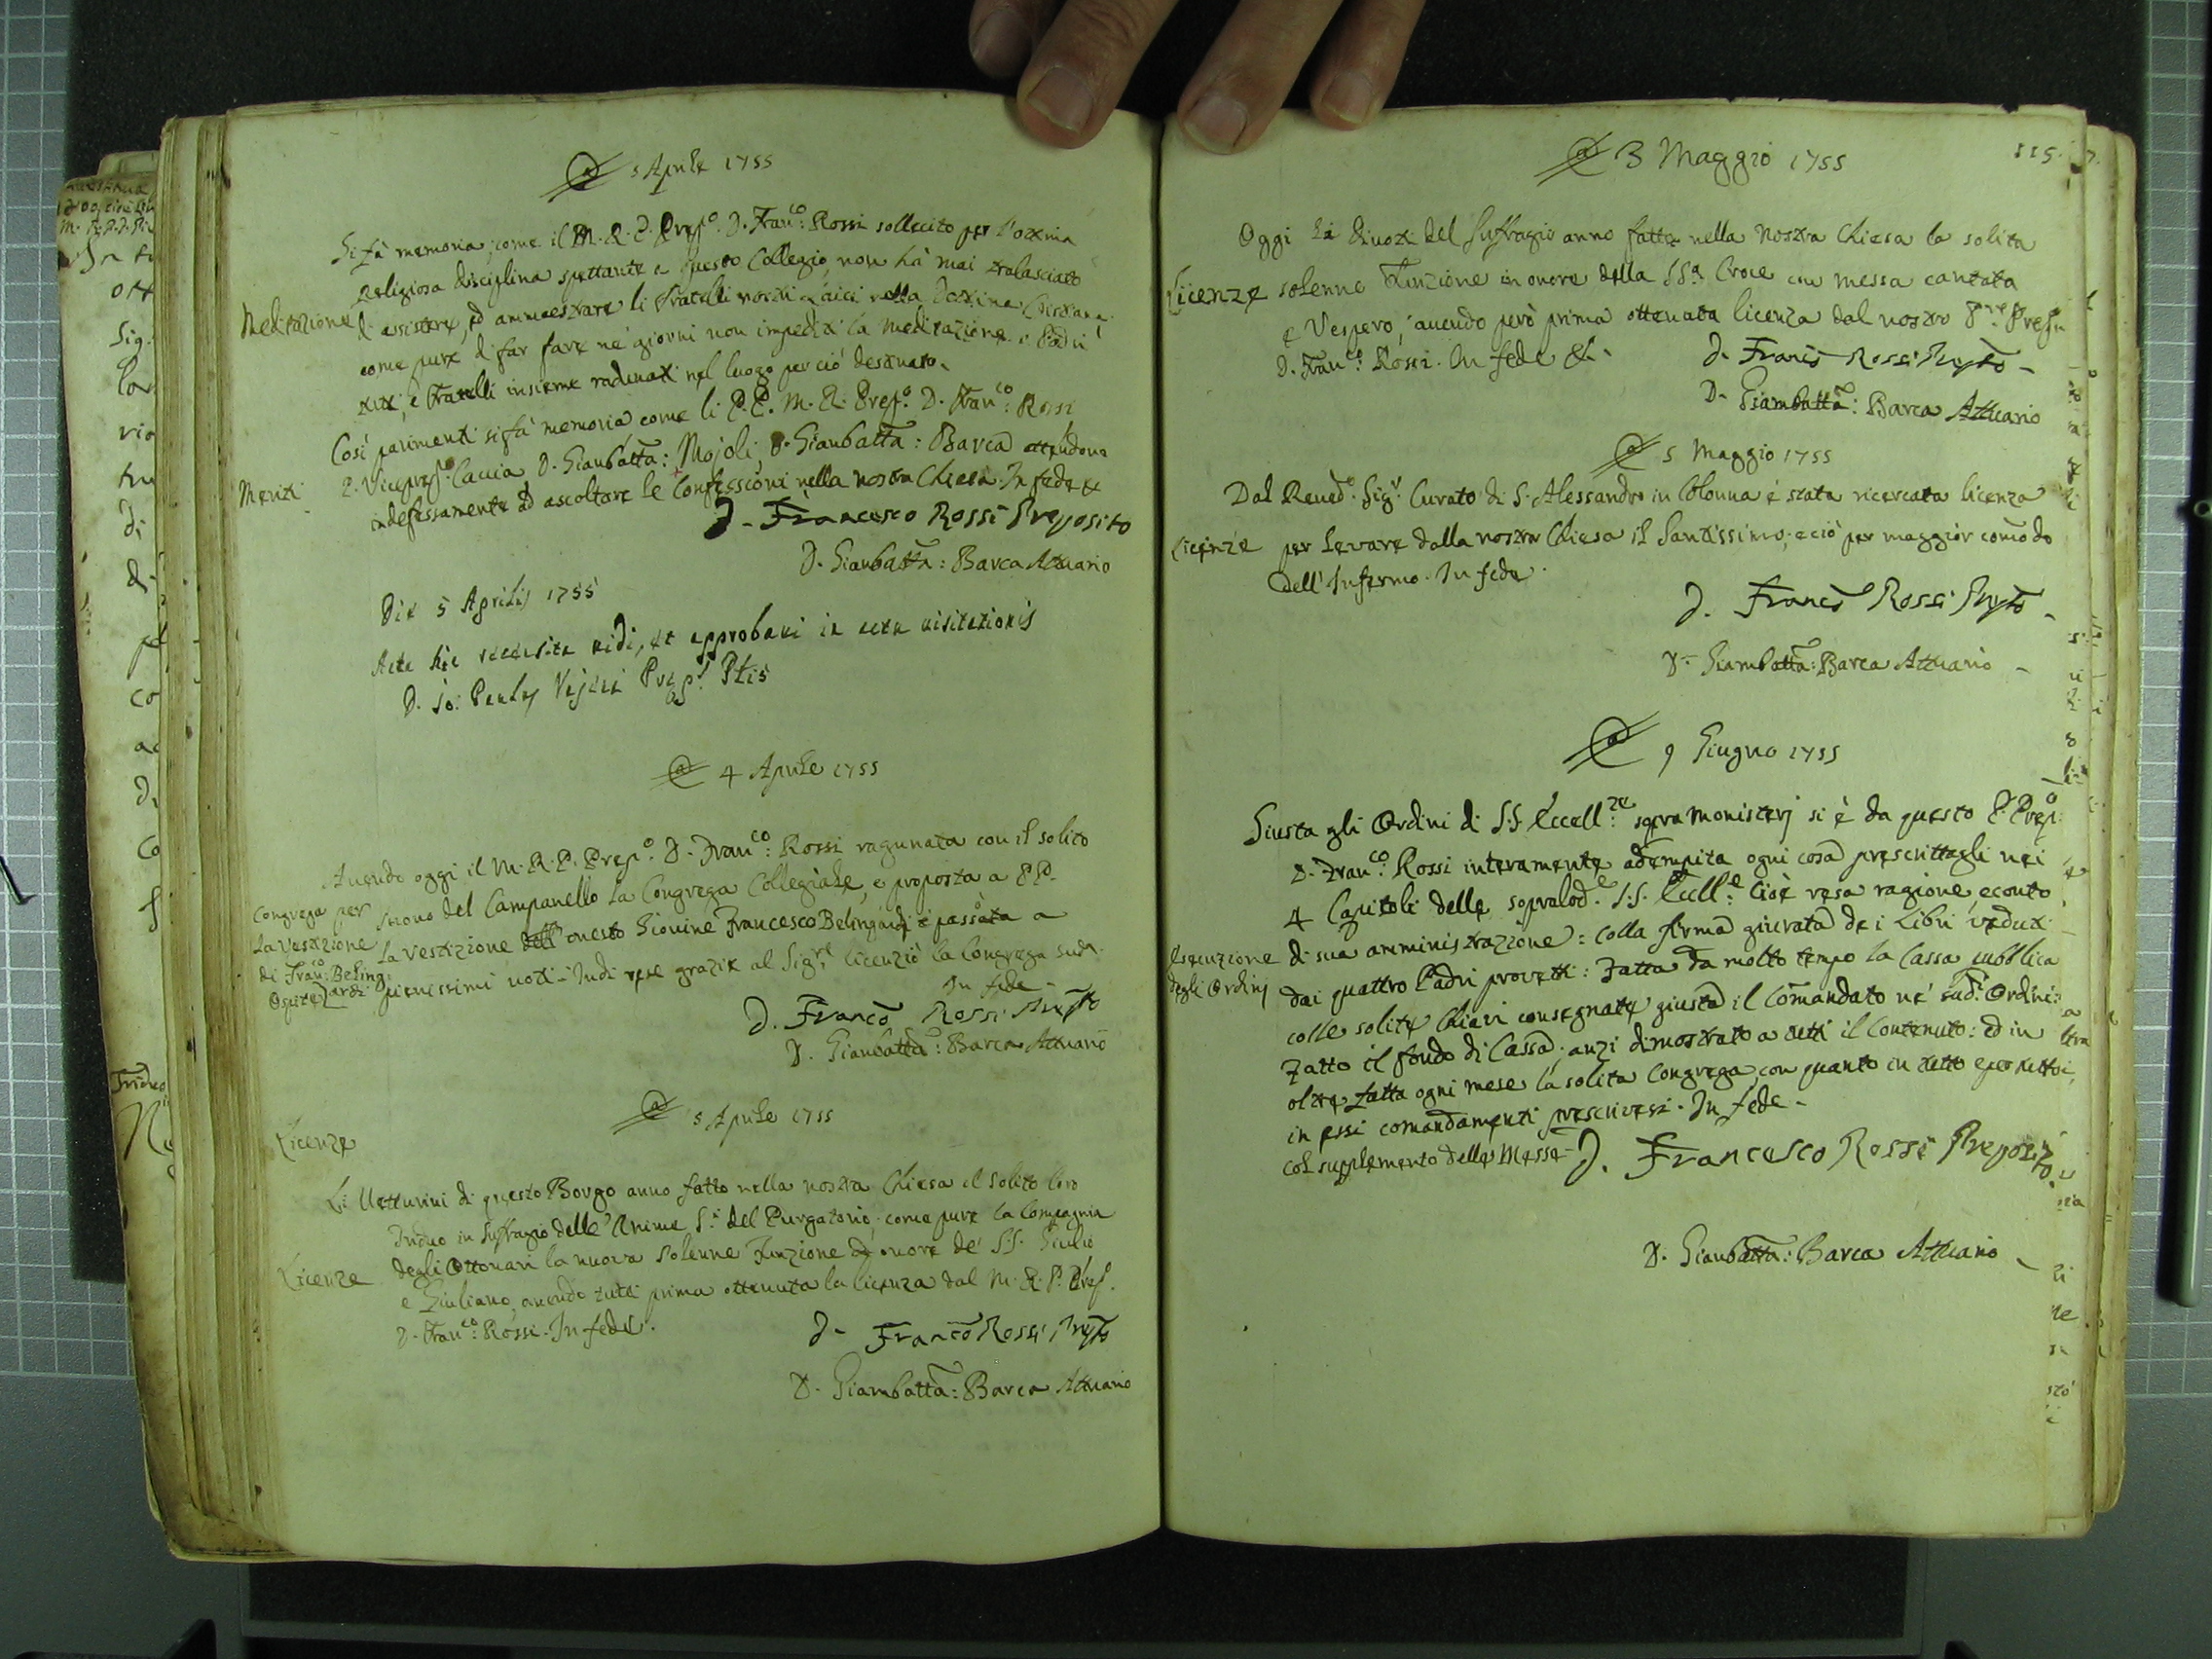 5 Aprile 1755
Si fà memoria, come il M. R. P. Prep.º D. Fran.co: Rossi sollecito per l'ottima
religiosa disciplina spettante a questo Collegio, non hà mai tralasciato
Meditazione di assistere, ed ammaestrare li fratelli nostri Laici nella Dottrina Cristiana
come pure di far fare ne' giorni non impediti la meditazione a Padri
tutti, e Fratelli insieme radunati nel luogo perciò destinato.
Così parimenti si fà memoria come li P.P. M. R. Prep.º D. Fran.co: Rossi
P. Viceprep.º Caccia, D. Gianbatta: Mojoli, D. Gianbatta: Barca attendono
Meriti indefessamente ad ascoltare le Confessioni nella nostra Chiesa. In fede &
D. Francesco Rossi Preposito
D. Gianbatta: Barca Attuario
Die 5 Aprilis 1755
Acta hic recensita vidi, et approbavi in actu visitationis
D. Jo: Paulus Prep.
4 Aprile 1755
Avendo oggi il M. R. P. Prep.º D. Fran.co: Rossi ragunata con il solito
Congrega per suono del Campanello la Congrega Collegiale, e proposta a PP.
la Vestizione la vestizione onesto Giovine Francesco Belingardi è passata a
di Fran.co: Beling: pienissimi voti - Indi rese grazie al Sig.re licenziò la Congrega sud.a
ardi Ospite
In fede -
D. Franco Rossi Prepto
D. Gianbatta: Barca Attuario
5 Aprile 1755
Licenze
Li Vetturini di questo Borgo anno fatto nella nostra Chiesa il solito loro
Triduo in suffragio delle Anime S.e del Purgatorio; come pure la Compagnia
Licenze degli Ottonari la nuova solenne Funzione ad onore de' S.S. Giulio
e Giuliano, avendo tutti prima ottenuta la licenza dal M. R. P. Prep.
D. Fran.co: Rossi. In fede.
D. Franco Rossi Prepto
D. Giambatta: Barca Attuario
115.
3 Maggio 1755
Oggi li divoti del suffragio anno fatta nella nostra Chiesa la solita
Licenze solenne Funzione in onore della SS.a Croce con messa cantata
e Vespero, avendo però prima ottenuta licenza dal nostro P.re Prep.
D. Fran.co: Rossi. In fede &.
D. Franco Rossi Prepto -
D. Giambatta: Barca Attuario
5 Maggio 1755
Dal Revedº. Sig.r Curato di S. Alessandro in Colonna è stata ricercata licenza
Licenze per levare dalla nostra Chiesa il Santissimo, e ciò per maggior comodo
dell'Infermo. In fede.
D. Franco Rossi Prepto -
D. Giambatta: Barca Attuario -
9 Giugno 1755
Giusta gli Ordini di S.S. Eccell.ze sopra Monisterj si è da questo P. Prep.º
D. Fran.co: Rossi interamente adempita ogni cosa prescrittagli nei
4 Capitoli delle sopralod.e S.S. Eccll.e Cioè resa ragione, e conto
Esecuzione di sua amministrazione: colla firma giurata de i Libri veduti
degli Ordinj dai quattro Padri provetti: Fatta da molto tempo la Cassa pubblica
colle solite Chiavi consegnate giusta il Comandato ne' sud.i Ordini:
Fatto il fondo di Cassa; anzi dimostrato a tutti il Contenuto: ed in
oltre fatta ogni mese la solita Congrega, con quanto in tutto e per tutto
in essi comandamenti prescrivesi. In fede -
col supplemento delle Messe -
D. Francesco Rossi Preposito.
D. Gianbatta: Barca Attuario -